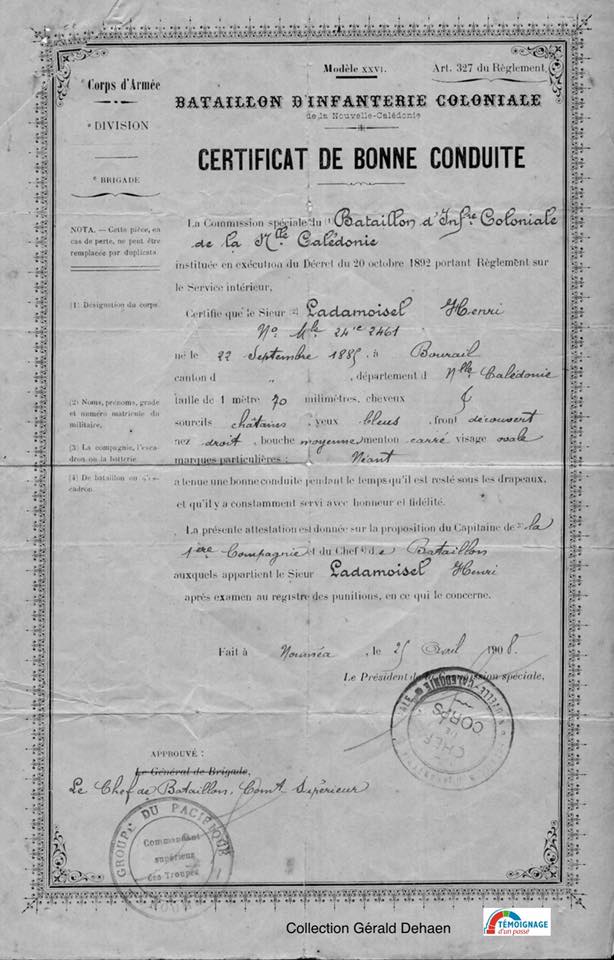 Modèle XXVI.
Art. 327 du Règlement
e Corps d'Armée
e DIVISION
e BRIGADE
BATAILLON D'INFANTERIE COLONIALE
de la Nouvelle-Calédonie
CERTIFICAT DE BONNE CONDUITE
NOTA. — Cette pièce, en
cas de perte, ne peut être
remplacée par duplicata
(1) Désignation du corps.
(2) Noms, prénoms, grade
et numéro matricule du
militaire.
(3) La compagnie, l'esca-
dron ou la batterie.
(4) De bataillon ou d'es-
cadron.
La Commission spéciale du Bataillon d'Infrie Coloniale
de la Nlle Calédonie
instituée en exécution du Décret du 20 octobre 1892 portant Règlement sur
le Service intérieur,
Certifie que le Sieur Ladamoisel Henri
No Mle 2461
né le 22 Septembre 1885, à Bourail
canton d " , département d Nlle Calédonie
taille de 1 mètre 70 millimètres, cheveux
sourcils châtains, yeux bleus, front découvert
nez droit, bouche moyenne menton carré visage ovale
marques particulières : Néant
a tenue une bonne conduite pendant le temps qu'il est resté sous les drapeaux,
et qu'il y a constamment servi avec honneur et fidélité.
La présente attestation est donnée sur la proposition du Capitaine de la
1ère Compagnie et du Chef de Bataillon
auxquels appartient le Sieur Ladamoisel Henri
après examen au registre des punitions, en ce qui le concerne.
Fait à Nouméa, le 25 Avril 1908.
Le Président de la Commission spéciale,
CHEF
DE
CORPS
APPROUVÉ :
Le Général de Brigade,
Le Chef de Bataillon, Comt Supérieur
GROUPE DU PACIFIQUE
Commandant
supérieur
des Troupes
Collection Gérald Dehaen
TÉMOIGNAGE
d'un passé